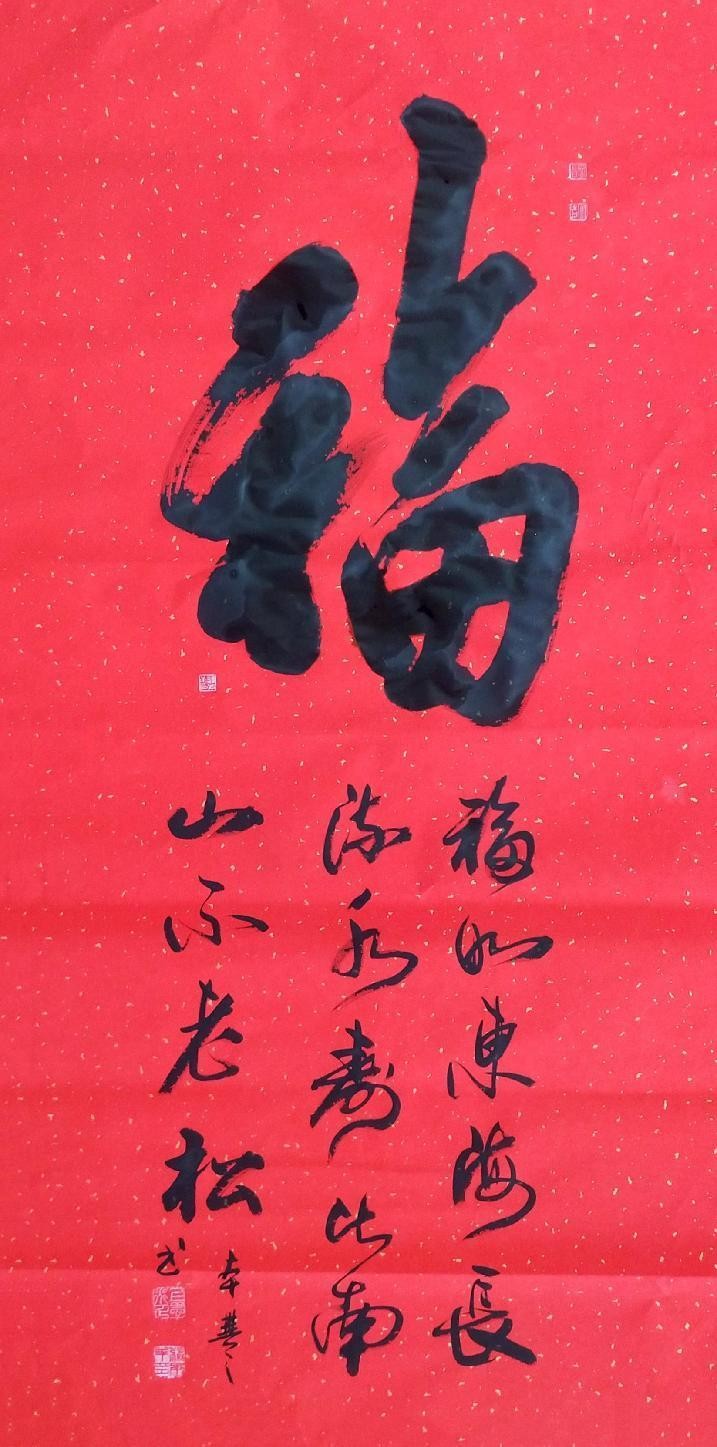 福
福如東海長
流水壽比南
山不老松